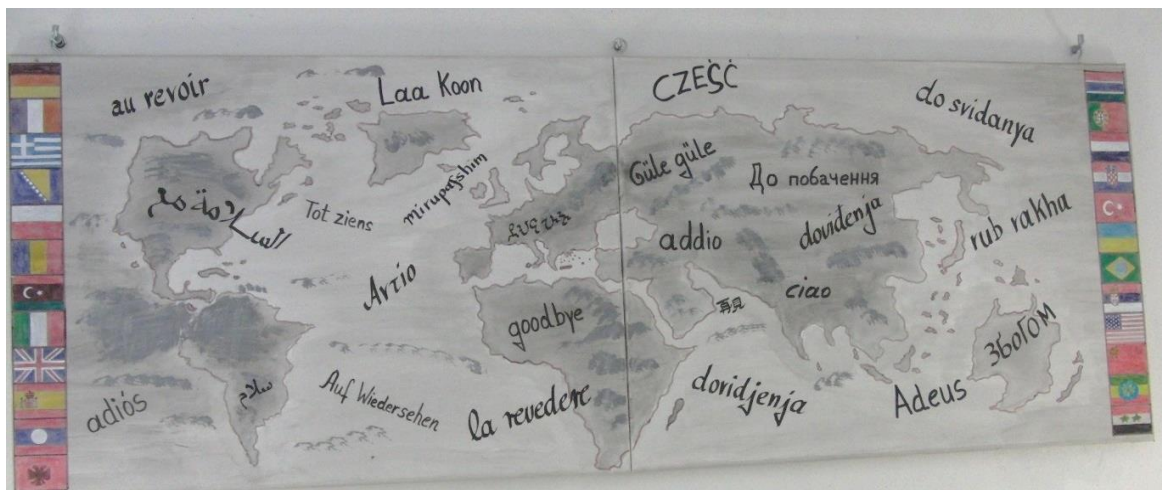 au revoir
Laa Koon
CZEŚĆ
do svidanya
Güle güle
До побачення
mirupafshim
Tot ziens
addio
doviđenja
rub rakha
Αντίο
ciao
再见
goodbye
ЗБОГОМ
سلام
adiós
Auf Wiedersehen
la revedere
doridjenja
Adeus